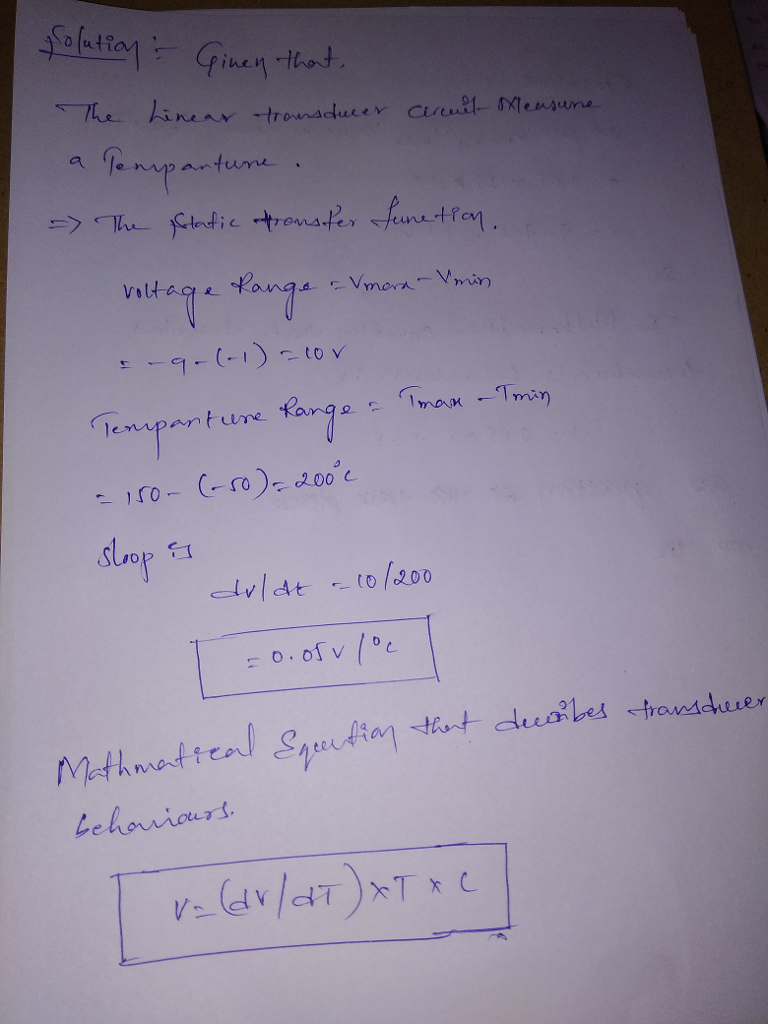 Solution :- Given that.
The Linear transducer circuit Measure
a Tempanture .
=> The Static transfer function.
voltage Range = Vmax - Vmin
= - 9 - (-1) = 10 V
Tempanture Range = Tmax - Tmin
= 150 - (-50) = 200°C
Sloop is
dv/dt = 10/200
= 0.05 v /°c
Mathmatical Equation that describes transducer
behaviours.
V = (dv/dT) x T x C